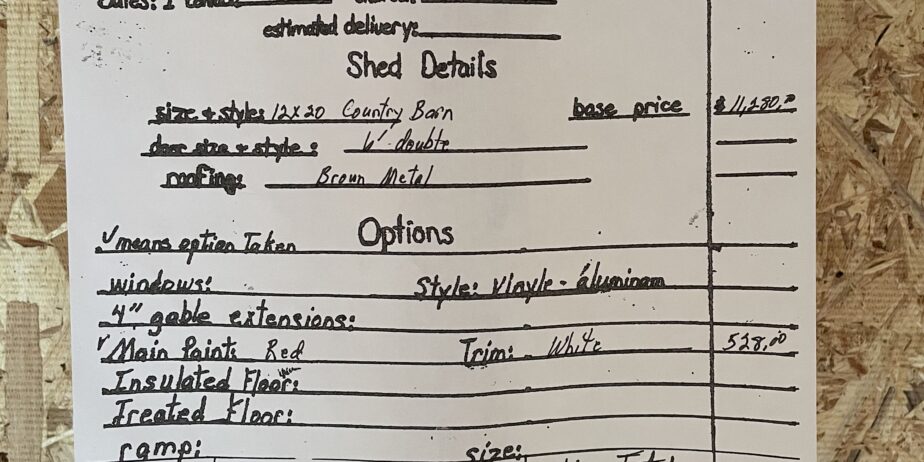 estimated delivery:
Shed Details
size + style: 12x20 Country Barn base price $11,280.00
door size + style: 6' double
roofing: Brown Metal
✓means option Taken Options
windows: Style: Vlayle - áluminam
4" gable extensions:
✓Main Paint: Red Trim: White 528.00
Insulated Floor:
Treated Floor:
ramp: size: